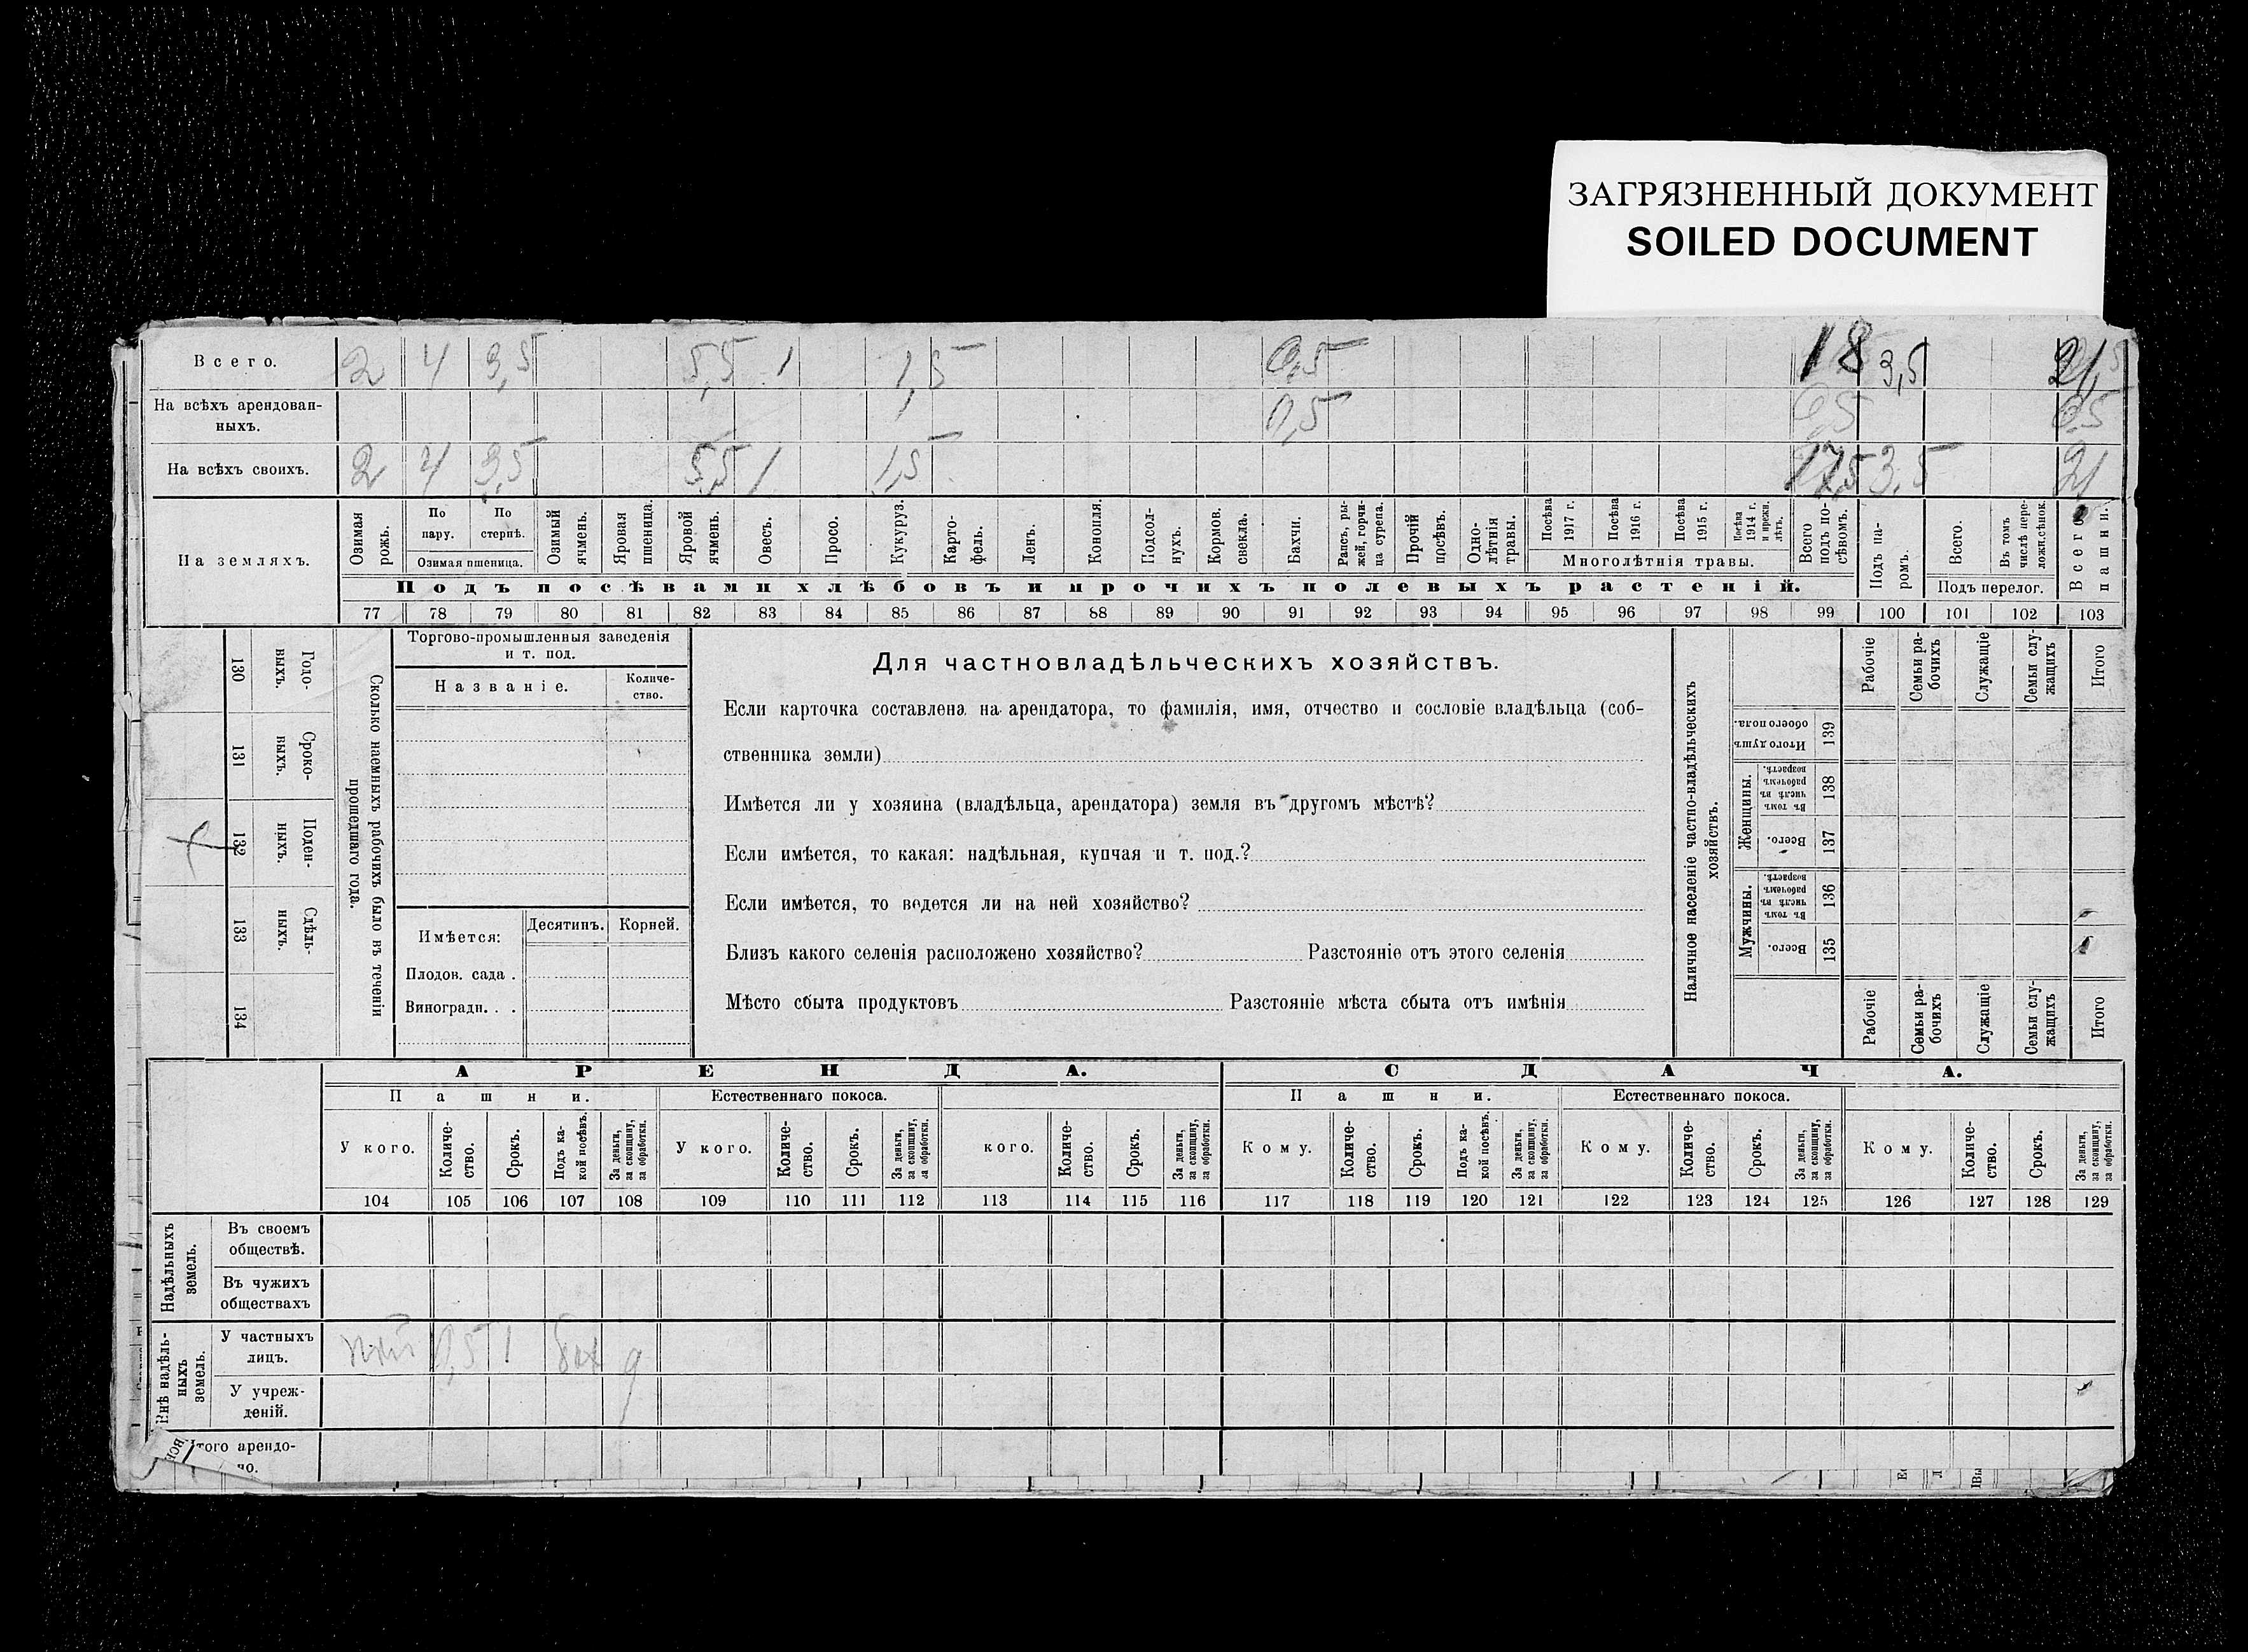 ЗАГРЯЗНЕННЫЙ ДОКУМЕНТ
SOILED DOCUMENT
Всего. 2 4 3,5 5,5 1 1,5 0,5 18 3,5 21,5
На всѣхъ арендован-
ныхъ. 0,5 0,5 0,5
На всѣхъ своихъ. 2 4 3,5 5,5 1 1,5 17,5 3,5 21
На земляхъ.
Озимая рожь.
По пару.
По стернѣ.
Озимая пшеница.
Озимый ячмень.
Яровая пшеница.
Яровой ячмень.
Овесъ.
Просо.
Кукуруз.
Карто-
фель.
Ленъ.
Конопля.
Подсол-
нухъ.
Кормов.
свекла.
Бахчи.
Рапсъ, ры-
жей, горчи-
ца сурепа.
Прочій
посѣвъ.
Одно-
лѣтнія
травы.
Посѣва
1917 г.
Посѣва
1916 г.
Посѣва
1915 г.
Посѣва
1914 г.
и прежн.
лѣтъ.
Многолѣтнія травы.
Всего
подъ по-
сѣвомъ.
Подъ па-
ромъ.
Всего.
Въ томъ
числѣ пере-
ложн. сѣнок.
Подъ перелог.
Всего
пашни.
Подъ посѣвами хлѣбовъ и прочихъ полевыхъ растеній.
77 78 79 80 81 82 83 84 85 86 87 88 89 90 91 92 93 94 95 96 97 98 99 100 101 102 103
130 Годо-
выхъ.
131 Сроко-
выхъ.
132 Поден-
ныхъ.
133 Сдѣль-
ныхъ.
134
Сколько наемныхъ рабочихъ было въ теченіи
прошедшаго года.
Торгово-промышленныя заведенія
и т. под.
Названіе.
Количе-
ство.
Имѣется:
Десятинъ. Корней.
Плодов. сада .
Виноградн. . .
Для частновладѣльческихъ хозяйствъ.
Если карточка составлена на арендатора, то фамилія, имя, отчество и сословіе владѣльца (соб-
ственника земли)
Имѣется ли у хозяина (владѣльца, арендатора) земля въ другомъ мѣстѣ?
Если имѣется, то какая: надѣльная, купчая и т. под.?
Если имѣется, то ведется ли на ней хозяйство?
Близъ какого селенія расположено хозяйство? Разстояніе отъ этого селенія
Мѣсто сбыта продуктовъ Разстояніе мѣста сбыта отъ имѣнія
Наличное населеніе частно-владѣльческихъ
хозяйствъ.
Рабочіе
Семьи ра-
бочихъ
Служащіе
Семьи слу-
жащихъ
Итого
Итого душъ
обоего пола. 139
Женщины.
Въ томъ
числѣ въ
рабочемъ
возрастѣ. 138
Всего. 137
Мужчины.
Въ томъ
числѣ въ
рабочемъ
возрастѣ. 136
Всего. 135
Рабочіе
Семьи ра-
бочихъ
Служащіе
Семьи слу-
жащихъ
Итого
АРЕНДА. СДАЧА.
Пашни. Естественнаго покоса. Пашни. Естественнаго покоса.
У кого.
Количе-
ство.
Срокъ.
Подъ ка-
кой посѣвъ.
За деньги,
за скопщину,
за обработки.
У кого.
Количе-
ство.
Срокъ.
За деньги,
за скопщину,
за обработки.
кого.
Количе-
ство.
Срокъ.
За деньги,
за скопщину,
за обработки.
Кому.
Количе-
ство.
Срокъ.
Подъ ка-
кой посѣвъ.
За деньги,
за скопщину,
за обработки.
Кому.
Количе-
ство.
Срокъ.
За деньги,
за скопщину,
за обработки.
Кому.
Количе-
ство.
Срокъ.
За деньги,
за скопщину,
за обработки.
104 105 106 107 108 109 110 111 112 113 114 115 116 117 118 119 120 121 122 123 124 125 126 127 128 129
Надѣльныхъ
земель.
Въ своемъ
обществѣ.
Въ чужихъ
обществахъ
Внѣ надѣль-
ныхъ
земель.
У частныхъ
лицъ. 0,5 1 бах
У учреж-
деній.
Итого арендо-